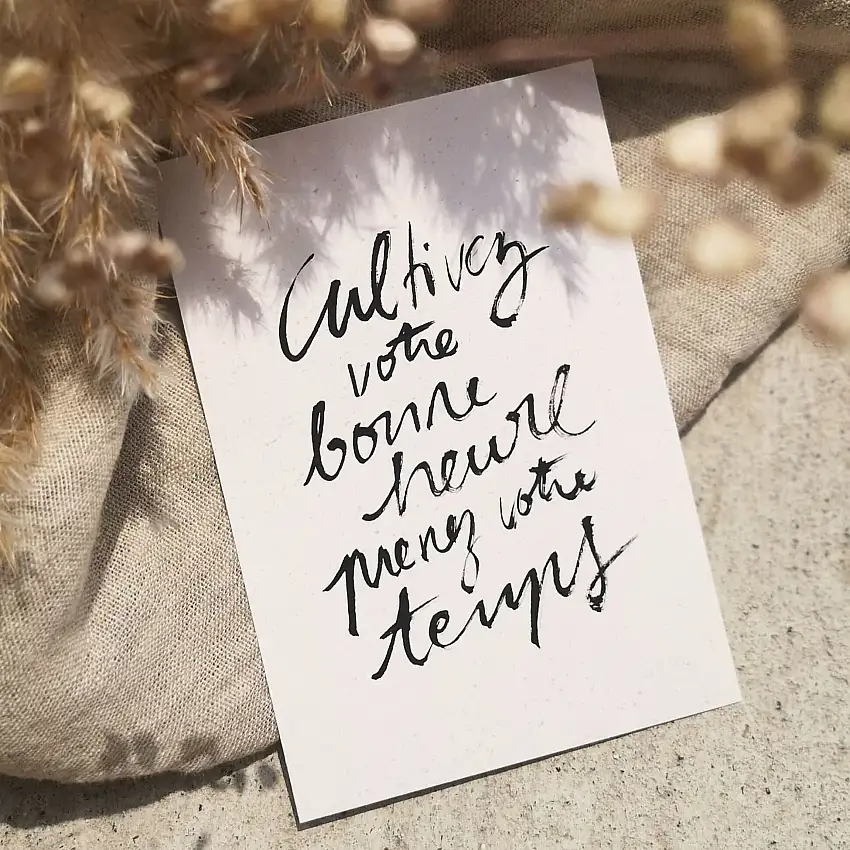 Cultivez
votre
bonne
heure
prenez votre
temps